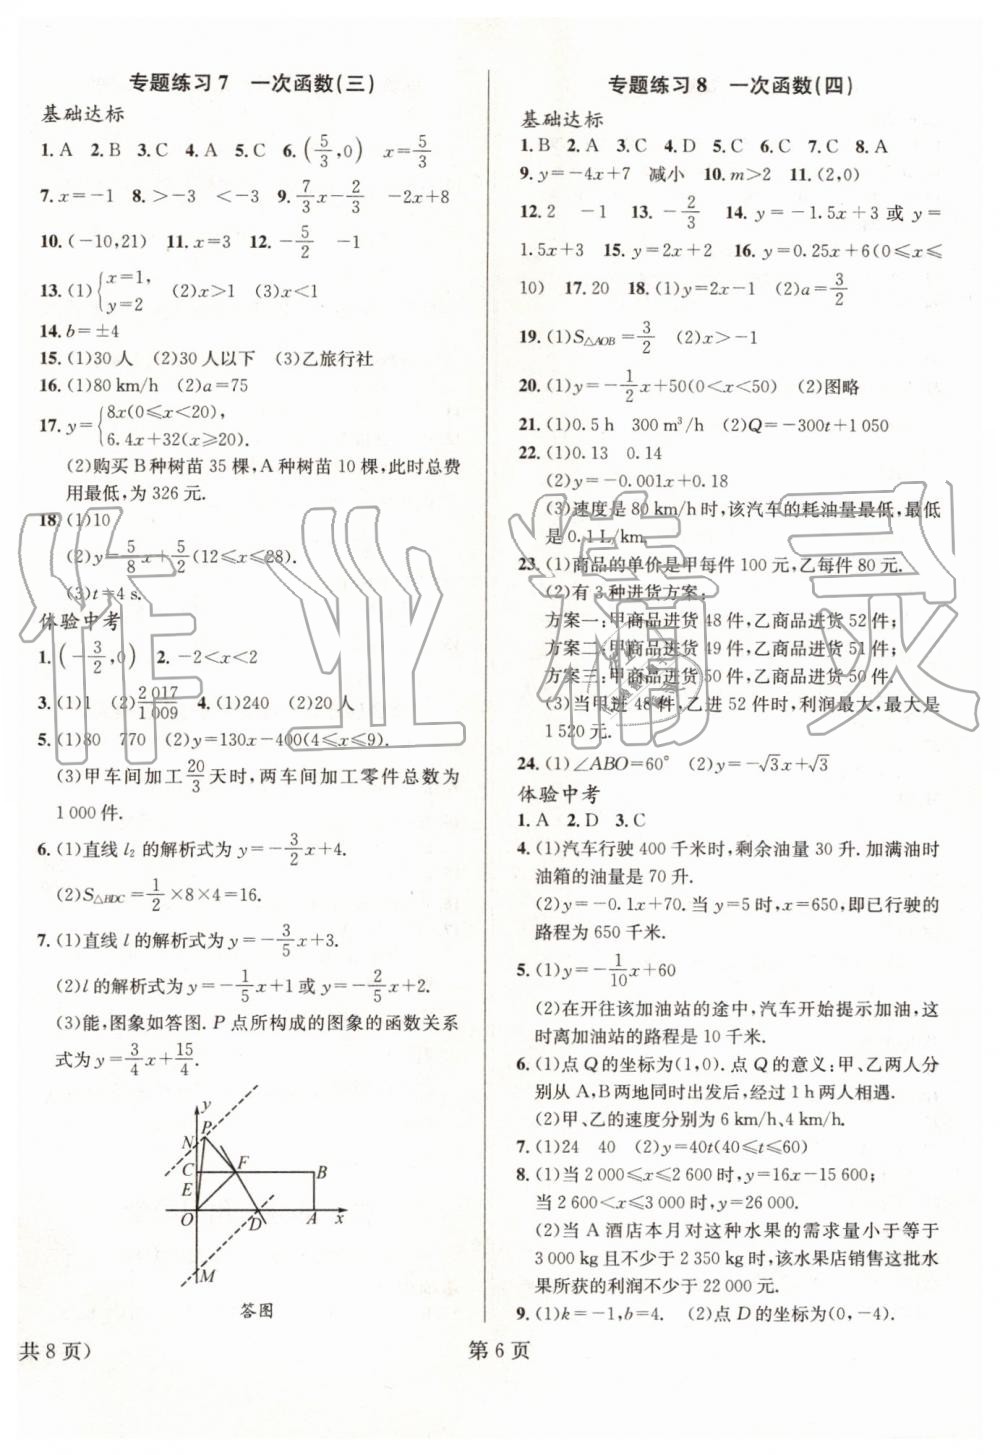 专题练习7 一次函数(三)
基础达标
1. A 2. B 3. C 4. A 5. C 6. (5/3,0) x=5/3
7. x=-1 8. >-3 <-3 9. 7/3x-2/3 -2x+8
10. (-10,21) 11. x=3 12. -5/2 -1
13. (1){x=1, y=2 (2)x>1 (3)x<1
14. b=±4
15. (1)30人 (2)30人以下 (3)乙旅行社
16. (1)80 km/h (2)a=75
17. y={8x(0≤x<20), 6.4x+32(x≥20).
(2)购买B种树苗35棵,A种树苗10棵,此时总费
用最低,为326元.
18. (1)10
(2)y=5/8x+5/2(12≤x≤28).
(3)t=4 s.
体验中考
1. (-3/2,0) 2. -2<x<2
3. (1)1 (2)2 017/1 009 4. (1)240 (2)20人
5. (1)80 770 (2)y=130x-400(4≤x≤9).
(3)甲车间加工20/3天时,两车间加工零件总数为
1 000件.
6. (1)直线l₂的解析式为y=-3/2x+4.
(2)S△BDC=1/2×8×4=16.
7. (1)直线l的解析式为y=-3/5x+3.
(2)l的解析式为y=-1/5x+1或y=-5x+5.
(3)能,图象如答图.P点所构成的图象的函数关系
式为y=3/4x+15/4.
y
P
N
C F B
E
O D A x
M
答图
共8页)
专题练习8 一次函数(四)
基础达标
1. B 2. A 3. C 4. D 5. C 6. C 7. C 8. A
9. y=-4x+7 减小 10. m>2 11. (2,0)
12. 2 -1 13. -2/3 14. y=-1.5x+3或y=
1.5x+3 15. y=2x+2 16. y=0.25x+6(0≤x≤
10) 17. 20 18. (1)y=2x-1 (2)a=3/2
19. (1)S△AOB=3/2 (2)x>-1
20. (1)y=-1/2x+50(0<x<50) (2)图略
21. (1)0.5 h 300 m³/h (2)Q=-300t+1 050
22. (1)0.13 0.14
(2)y=-0.001x+0.18
(3)速度是80 km/h时,该汽车的耗油量最低,最低
是0.1 L/km.
23. (1)商品的单价是甲每件100元,乙每件80元.
(2)有3种进货方案:
方案一:甲商品进货48件,乙商品进货52件;
方案二:甲商品进货49件,乙商品进货51件;
方案三:甲商品进货50件,乙商品进货50件.
(3)当甲进48件,乙进52件时,利润最大,最大是
1 520元.
24. (1)∠ABO=60° (2)y=-√3x+√3
体验中考
1. A 2. D 3. C
4. (1)汽车行驶400千米时,剩余油量30升.加满油时
油箱的油量是70升.
(2)y=-0.1x+70.当y=5时,x=650,即已行驶的
路程为650千米.
5. (1)y=-1/10x+60
(2)在开往该加油站的途中,汽车开始提示加油,这
时离加油站的路程是10千米.
6. (1)点Q的坐标为(1,0).点Q的意义:甲、乙两人分
别从A,B两地同时出发后,经过1 h两人相遇.
(2)甲、乙的速度分别为6 km/h、4 km/h.
7. (1)24 40 (2)y=40t(40≤t≤60)
8. (1)当2 000≤x≤2 600时,y=16x-15 600;
当2 600<x≤3 000时,y=26 000.
(2)当A酒店本月对这种水果的需求量小于等于
3 000 kg且不少于2 350 kg时,该水果店销售这批水
果所获的利润不少于22 000元.
9. (1)k=-1,b=4. (2)点D的坐标为(0,-4).
第6页
作业精灵